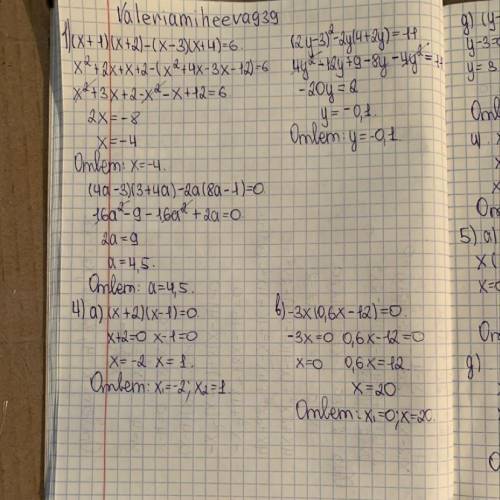 Valeriamiheeva939
1) (x+1)(x+2)-(x-3)(x+4)=6
x²+2x+x+2-(x²+4x-3x-12)=6
x²+3x+2-x²-x+12=6
2x=-8
x=-4
Ответ: x=-4.
(4a-3)(3+4a)-2a(8a-1)=0
16a²-9-16a²+2a=0
2a=9
a=4,5.
Ответ: a=4,5.
4) a) (x+2)(x-1)=0
x+2=0 x-1=0
x=-2 x=1.
Ответ: x₁=-2; x₂=1.
(2y-3)²-2y(4+2y)=11
4y²-12y+9-8y-4y²=11
-20y=2
y=-0,1.
Ответ: y=-0,1.
в) -3x(0,6x-12)=0.
-3x=0 0,6x-12=0
x=0 0,6x=12
x=20
Ответ: x₁=0; x=20.
g) (y
y-3=
y=3
5) a)
x(
x=0
g)